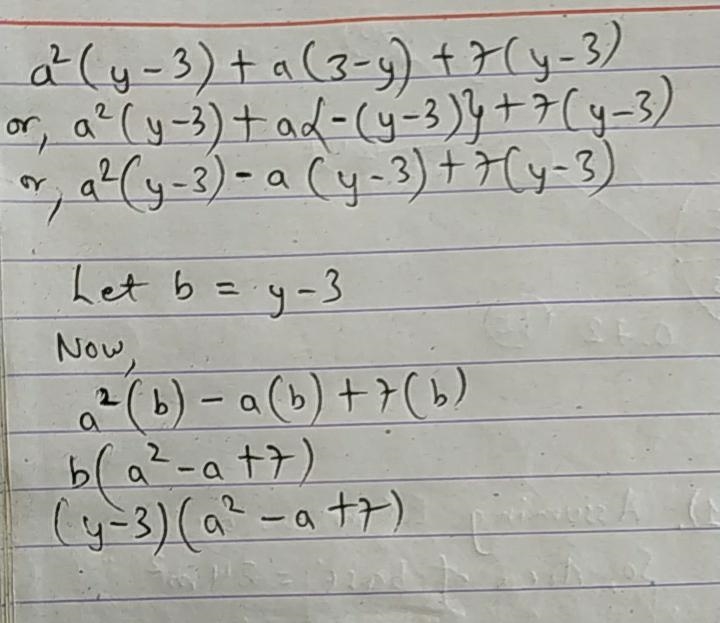 a²(y-3) + a(3-y) + 7(y-3)
or, a²(y-3) + a{-(y-3)} + 7(y-3)
or, a²(y-3) - a(y-3) + 7(y-3)
Let b = y-3
Now,
a²(b) - a(b) + 7(b)
b(a²-a+7)
(y-3)(a²-a+7)